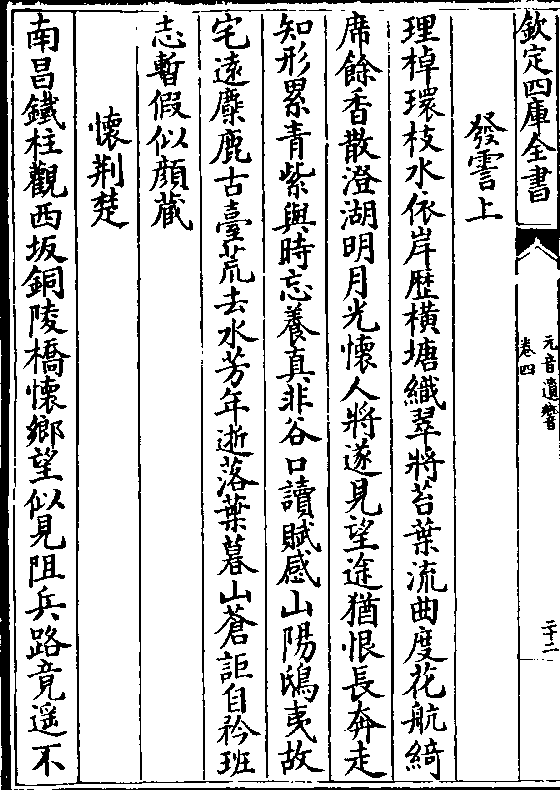 欽定四庫全書
元音遺響
卷四
二十二
發霅上
理棹環枝水依岸歷横塘織翠將苔葉流曲度花航綺
席餘香散澄湖明月光懷人將遂見望途猶恨長奔走
知形累青紫與時忘養真非谷口讀賦感山陽鴟夷故
宅遠麋鹿古臺荒去水芳年逝落葉暮山蒼詎自矜班
志暫假似顔蔵
懷荆楚
南昌鐵柱觀西坂銅陵橋懷鄉望似見阻兵路竟遥不